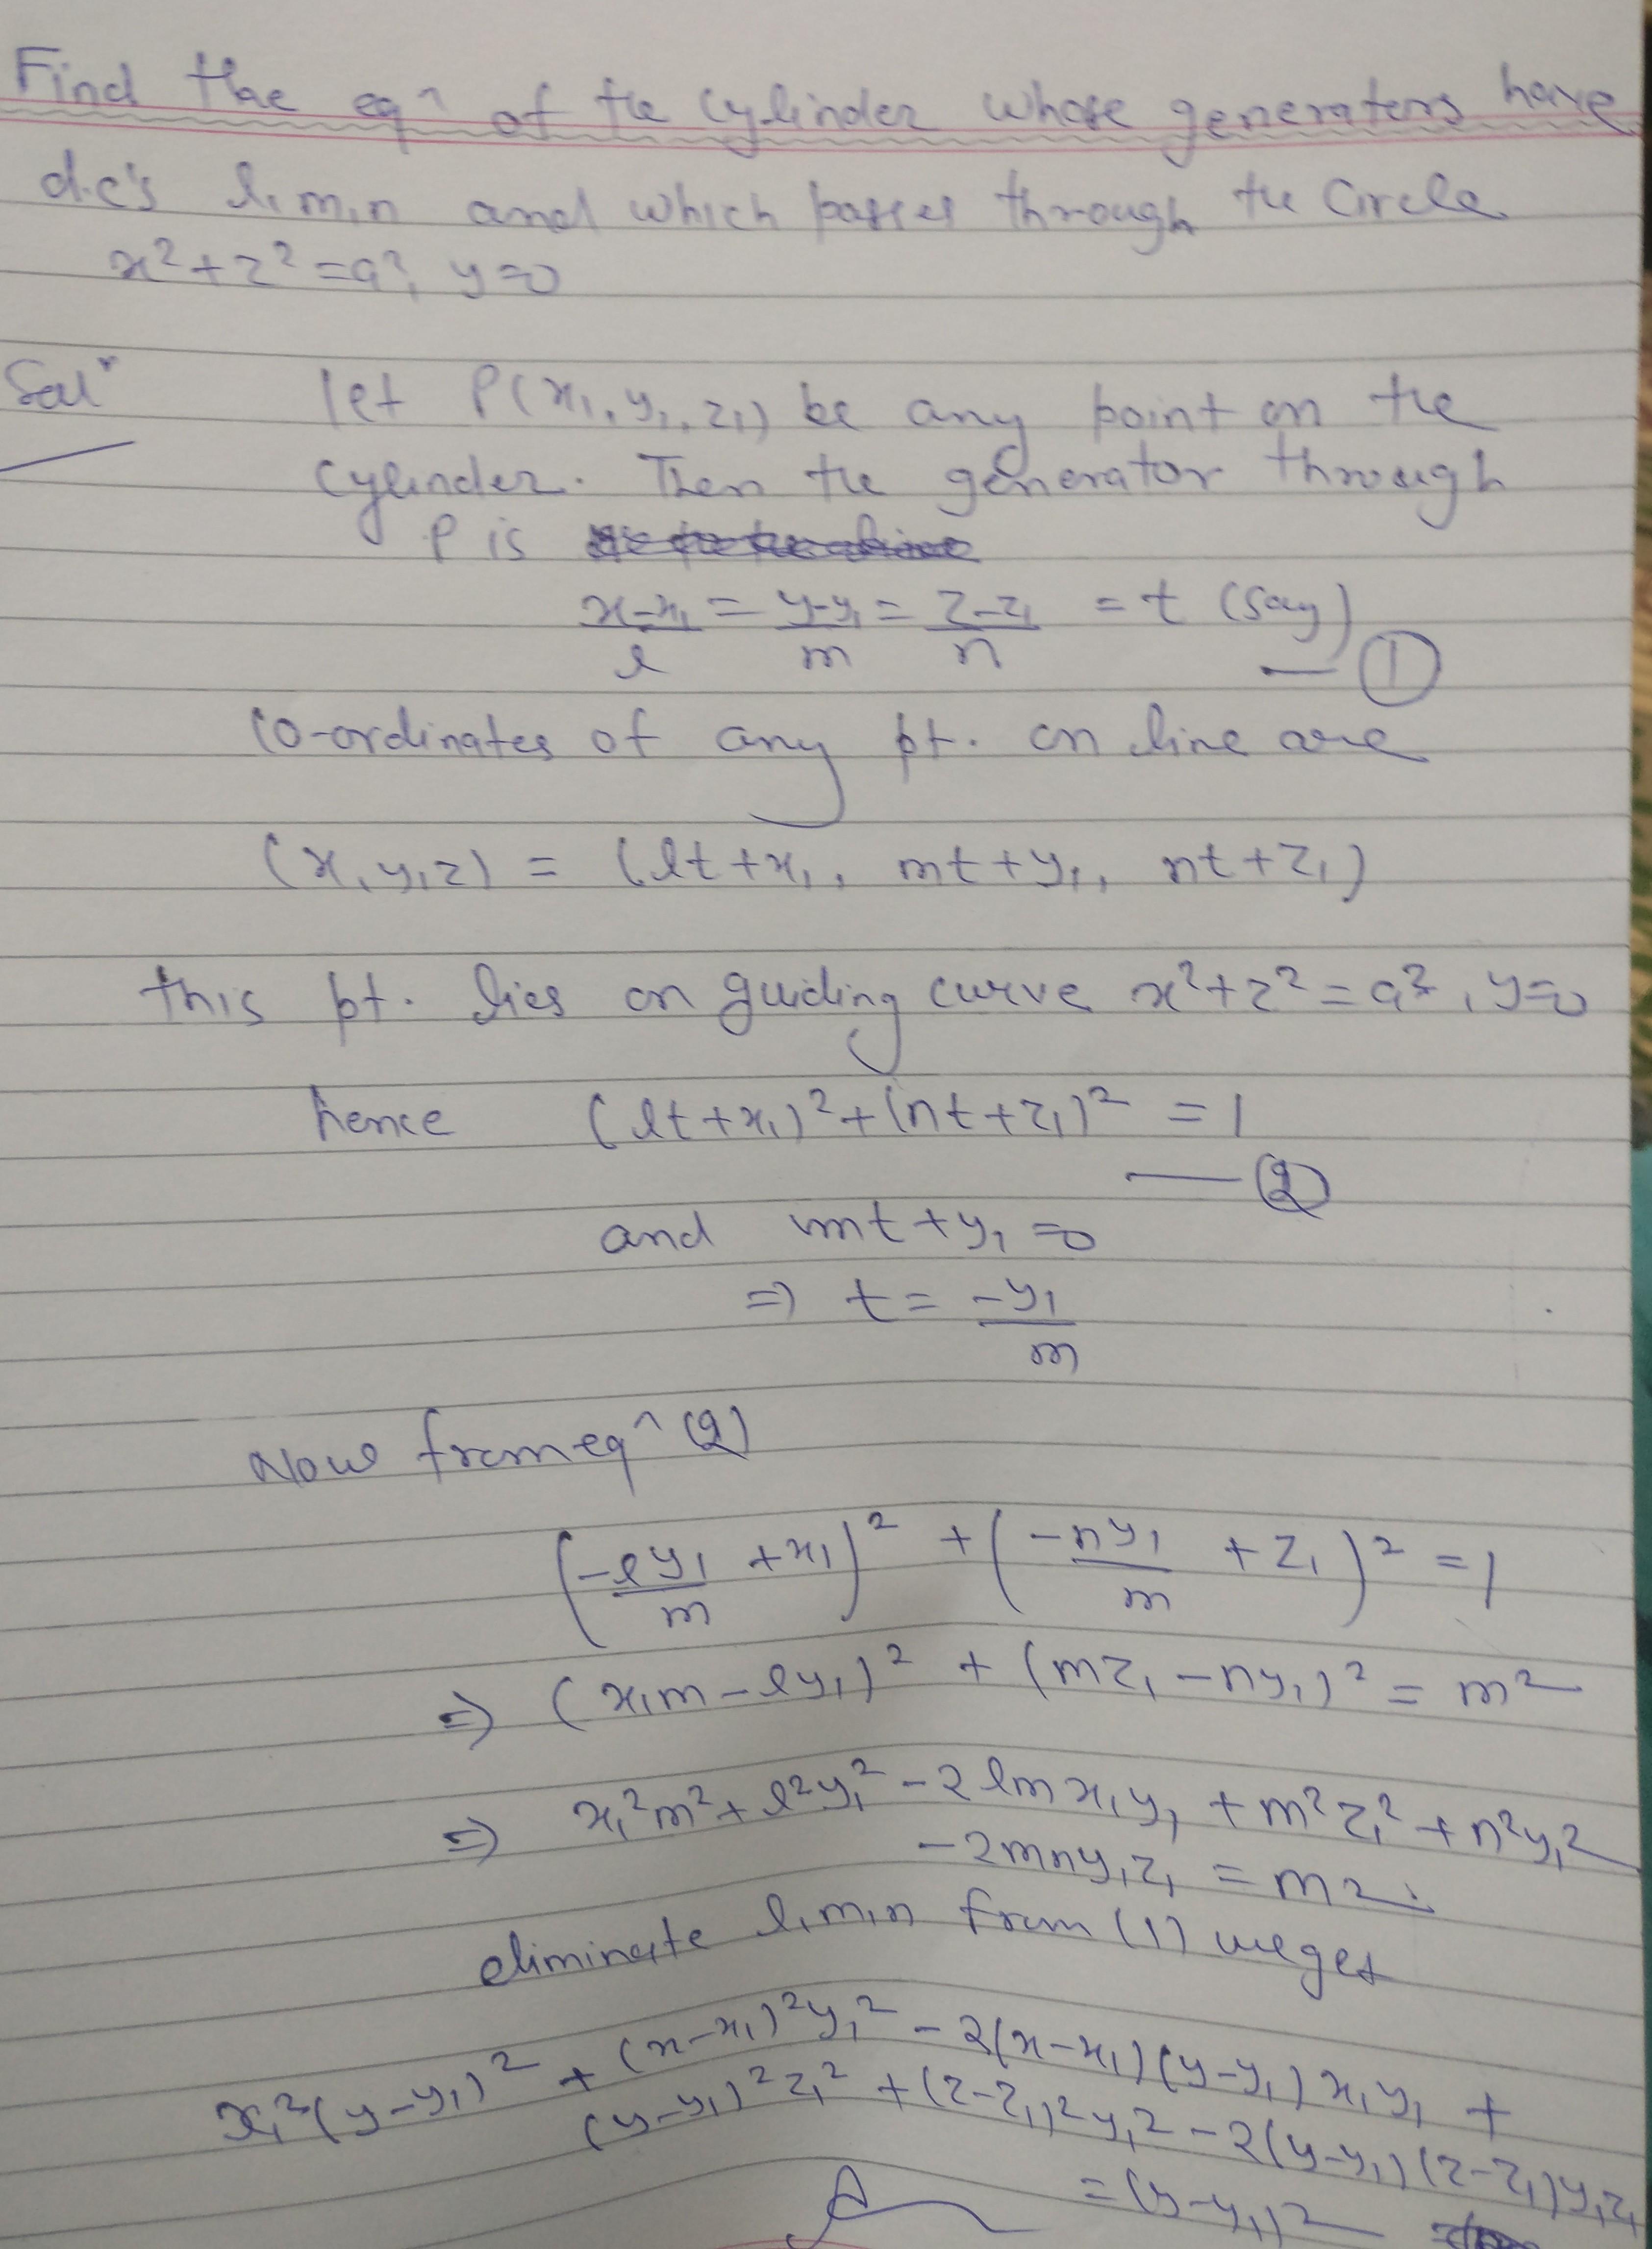 Find the eqn of the cylinder whose generators have
d.c's l, m, n and which passes through the Circle
x²+z²=a², y=0
Sol^n let P(x₁, y₁, z₁) be any point on the
cylinder. Then the generator through
P is
(x-x₁)/l = (y-y₁)/m = (z-z₁)/n = t (say)
— ①
Co-ordinates of any pt. on line are
(x, y, z) = (lt+x₁, mt+y₁, nt+z₁)
this pt. lies on guiding curve x²+z²=a², y=0
hence (lt+x₁)²+(nt+z₁)² = 1
— ②
and mt+y₁=0
⇒ t = -y₁/m
Now from eqn (2)
(-ly₁/m + x₁)² + (-ny₁/m + z₁)² = 1
⇒ (x₁m-ly₁)² + (mz₁-ny₁)² = m²
⇒ x₁²m²+l²y₁²-2lmx₁y₁+m²z₁²+n²y₁²
-2mny₁z₁ = m².
eliminate l, m, n from (1) we get
x₁²(y-y₁)² + (x-x₁)²y₁² - 2(x-x₁)(y-y₁)x₁y₁ +
(y-y₁)²z₁² + (z-z₁)²y₁² - 2(y-y₁)(z-z₁)y₁z₁
= (y-y₁)²